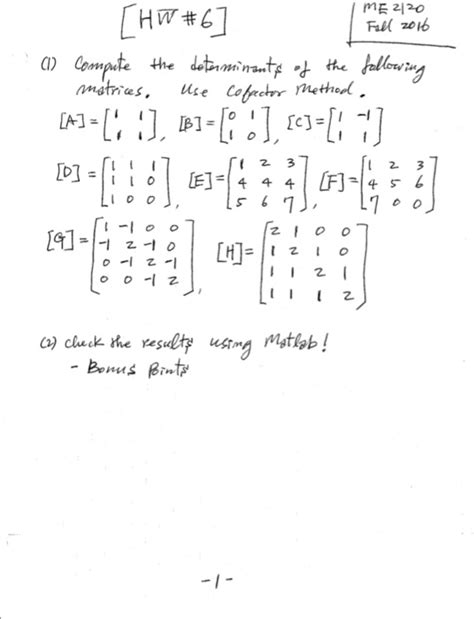 [HW #6]
ME 2120
Fall 2016
(1) Compute the determinants of the following
matrices. Use Cofactor Method.
[A] = [1 1; 1 1], [B] = [0 1; 1 0], [C] = [1 -1; 1 1]
[D] = [1 1 1; 1 1 0; 1 0 0], [E] = [1 2 3; 4 4 4; 5 6 7], [F] = [1 2 3; 4 5 6; 7 0 0]
[G] = [1 -1 0 0; -1 2 -1 0; 0 -1 2 -1; 0 0 -1 2], [H] = [2 1 0 0; 1 2 1 0; 1 1 2 1; 1 1 1 2]
(2) check the results using Matlab!
- Bonus Points
-1-